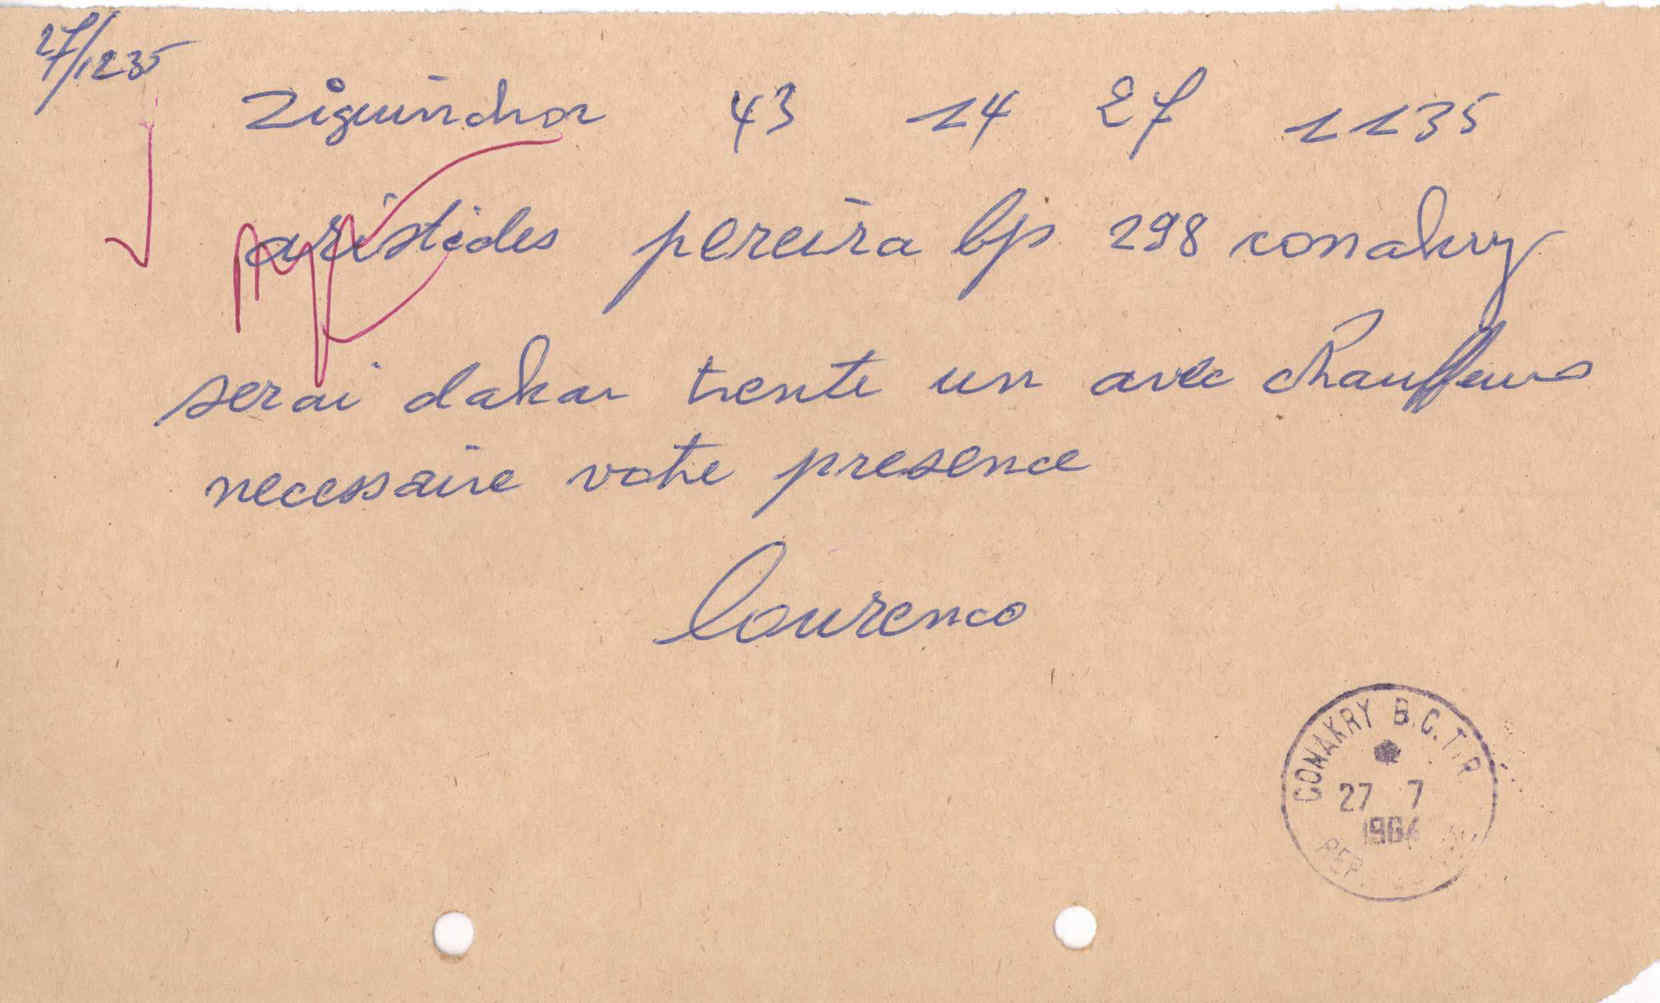 27/1235
Ziguinchor 43 14 27 1135
aristides pereira bp 298 conakry
serai dakar trente un avec chauffeurs
necessaire votre presence
lourenco
CONAKRY B.C.T.R
27 7
1964
REP.